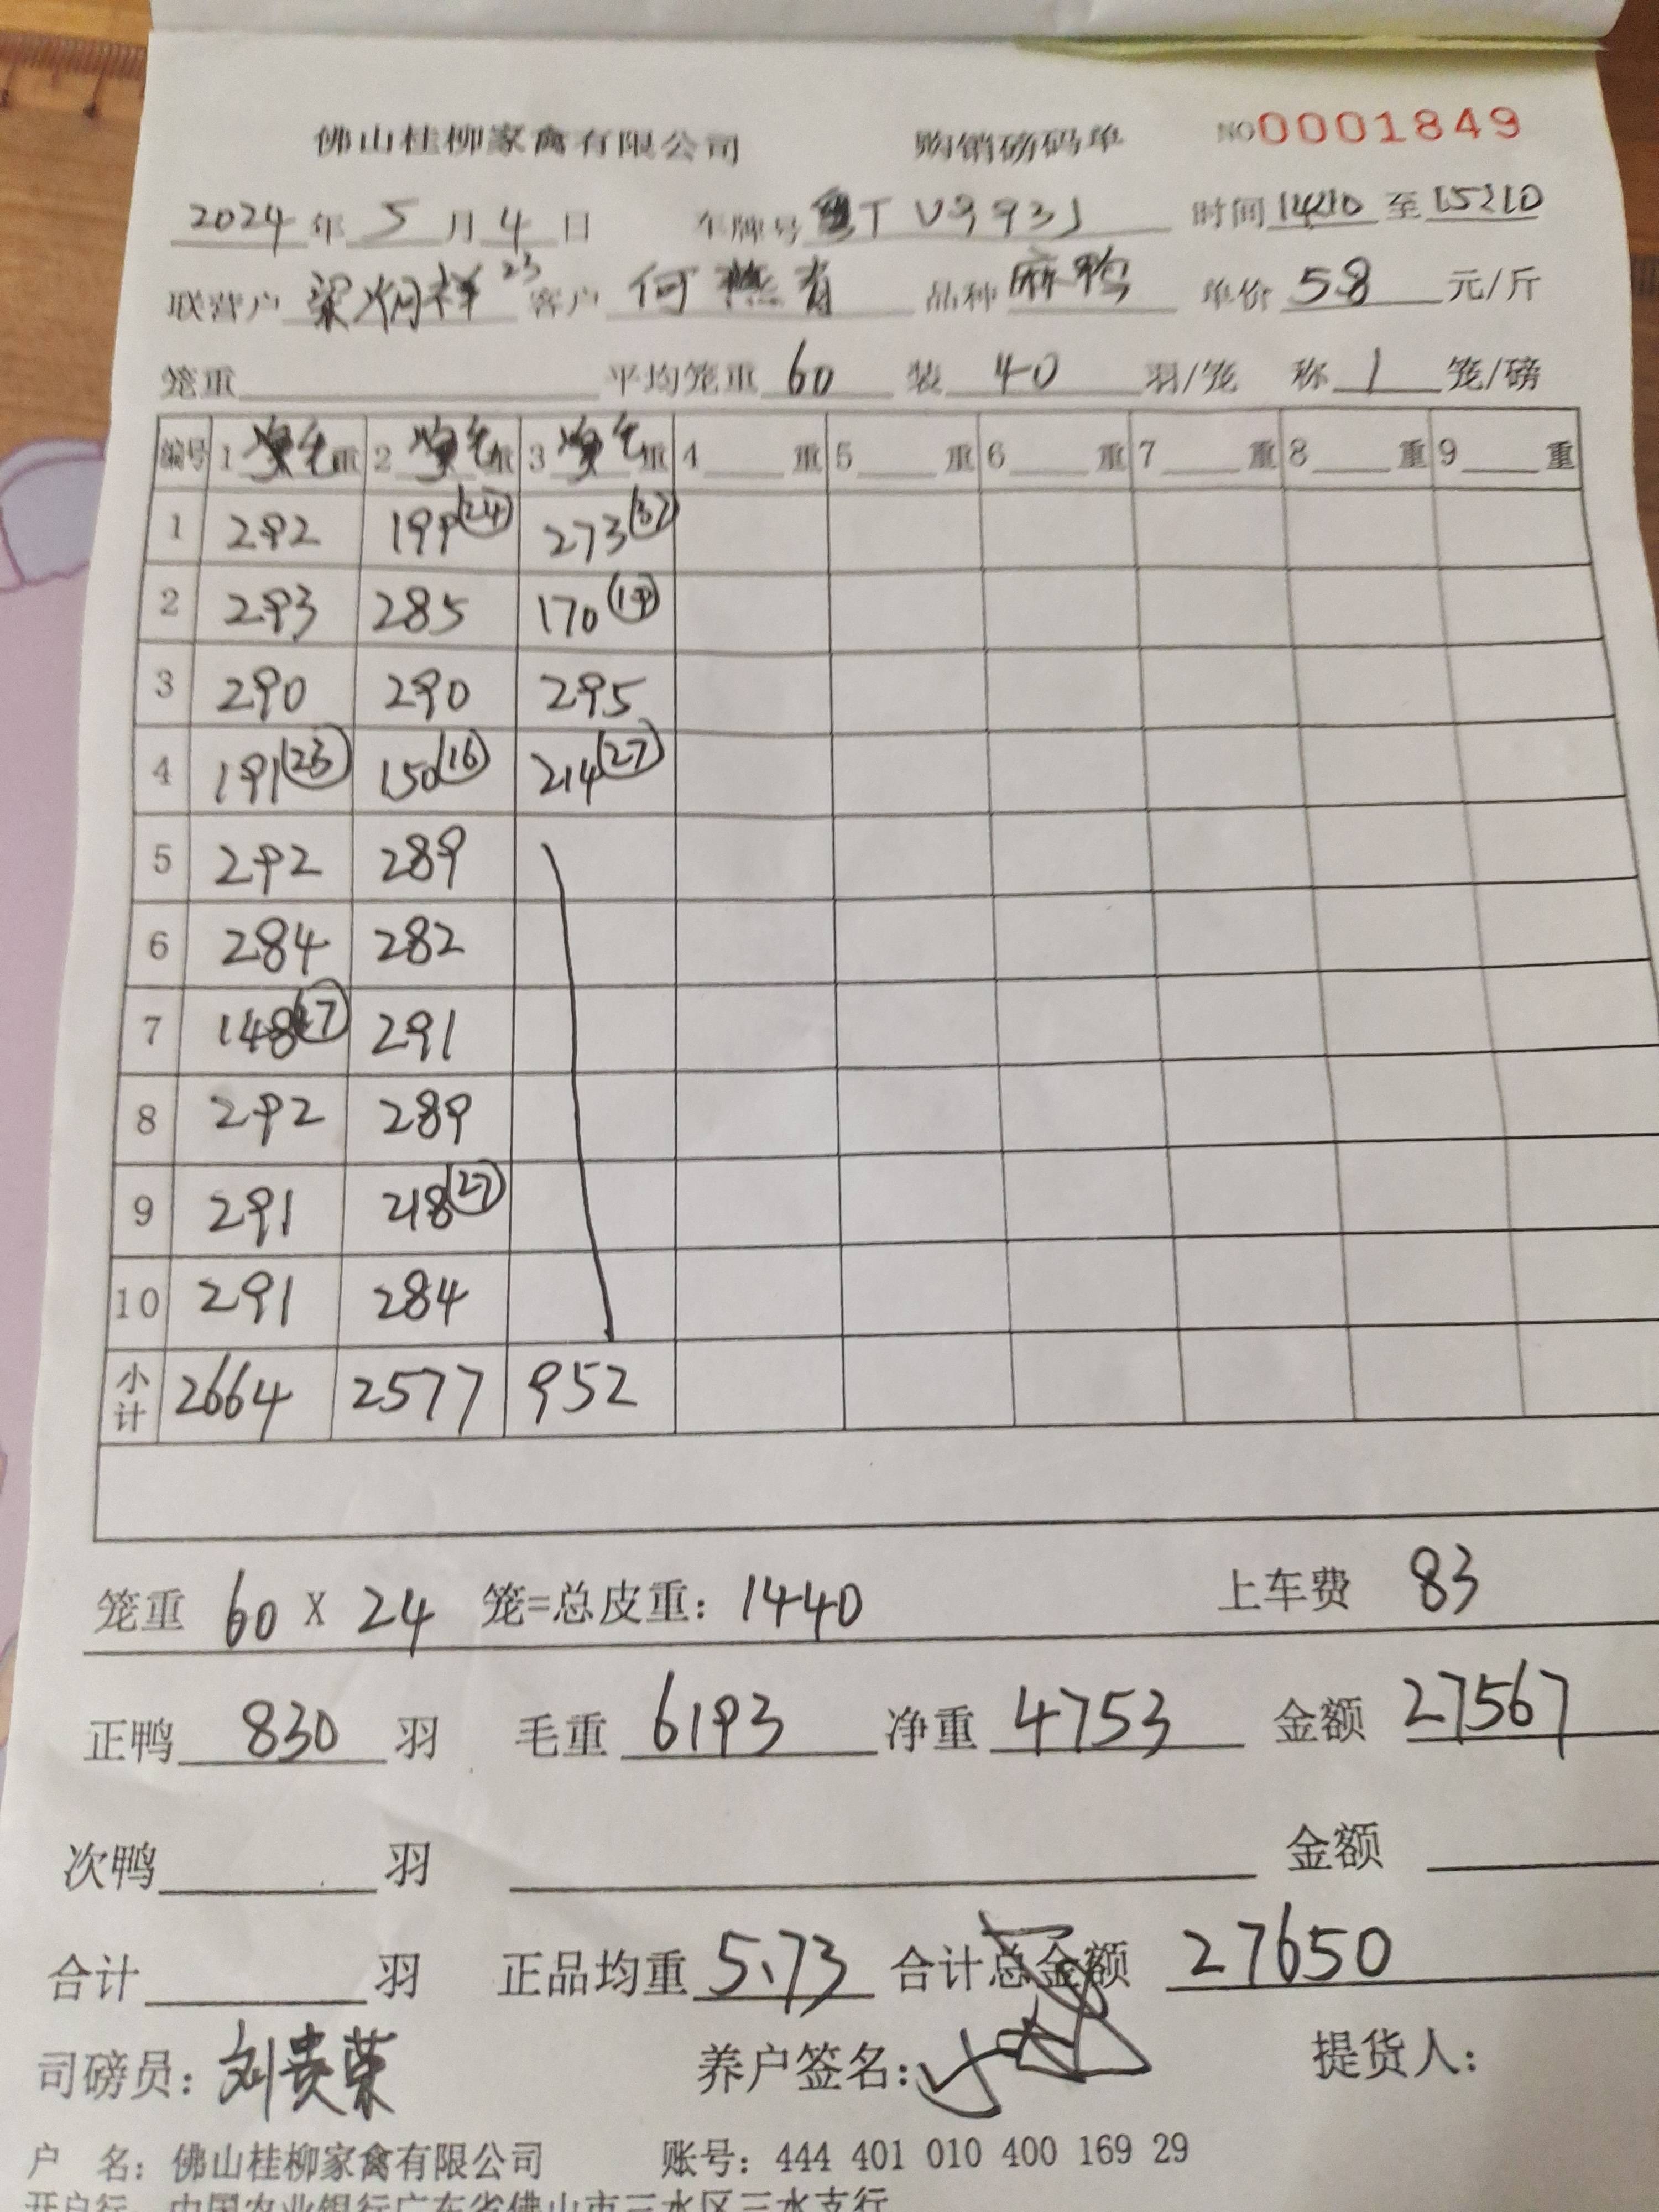 佛山桂柳家禽有限公司 购销磅码单 NO0001849
2024年5月4日 车牌号 TV993J 时间14210至15210
联营户 梁炳祥23 客户 何燕青 品种 麻鸭 单价 5.8 元/斤
笼重 平均笼重 60 装 40 羽/笼 称 1 笼/磅
编号 1 毛重 2 毛重 3 毛重 4 重 5 重 6 重 7 重 8 重 9 重
1 292 199(24) 273(37)
2 293 285 170(19)
3 290 290 295
4 191(23) 150(16) 214(27)
5 292 289
6 284 282
7 148(17) 291
8 292 289
9 291 218(27)
10 291 284
小计 2664 2577 952
笼重 60 X 24 笼=总皮重: 1440 上车费 83
正鸭 830 羽 毛重 6193 净重 4753 金额 27567
次鸭 羽 金额
合计 羽 正品均重 5.73 合计总金额 27650
司磅员: 刘贵荣 养户签名: 提货人:
户 名: 佛山桂柳家禽有限公司 账号: 444 401 010 400 169 29
开户行: 中国农业银行广东省佛山市三水区三水支行